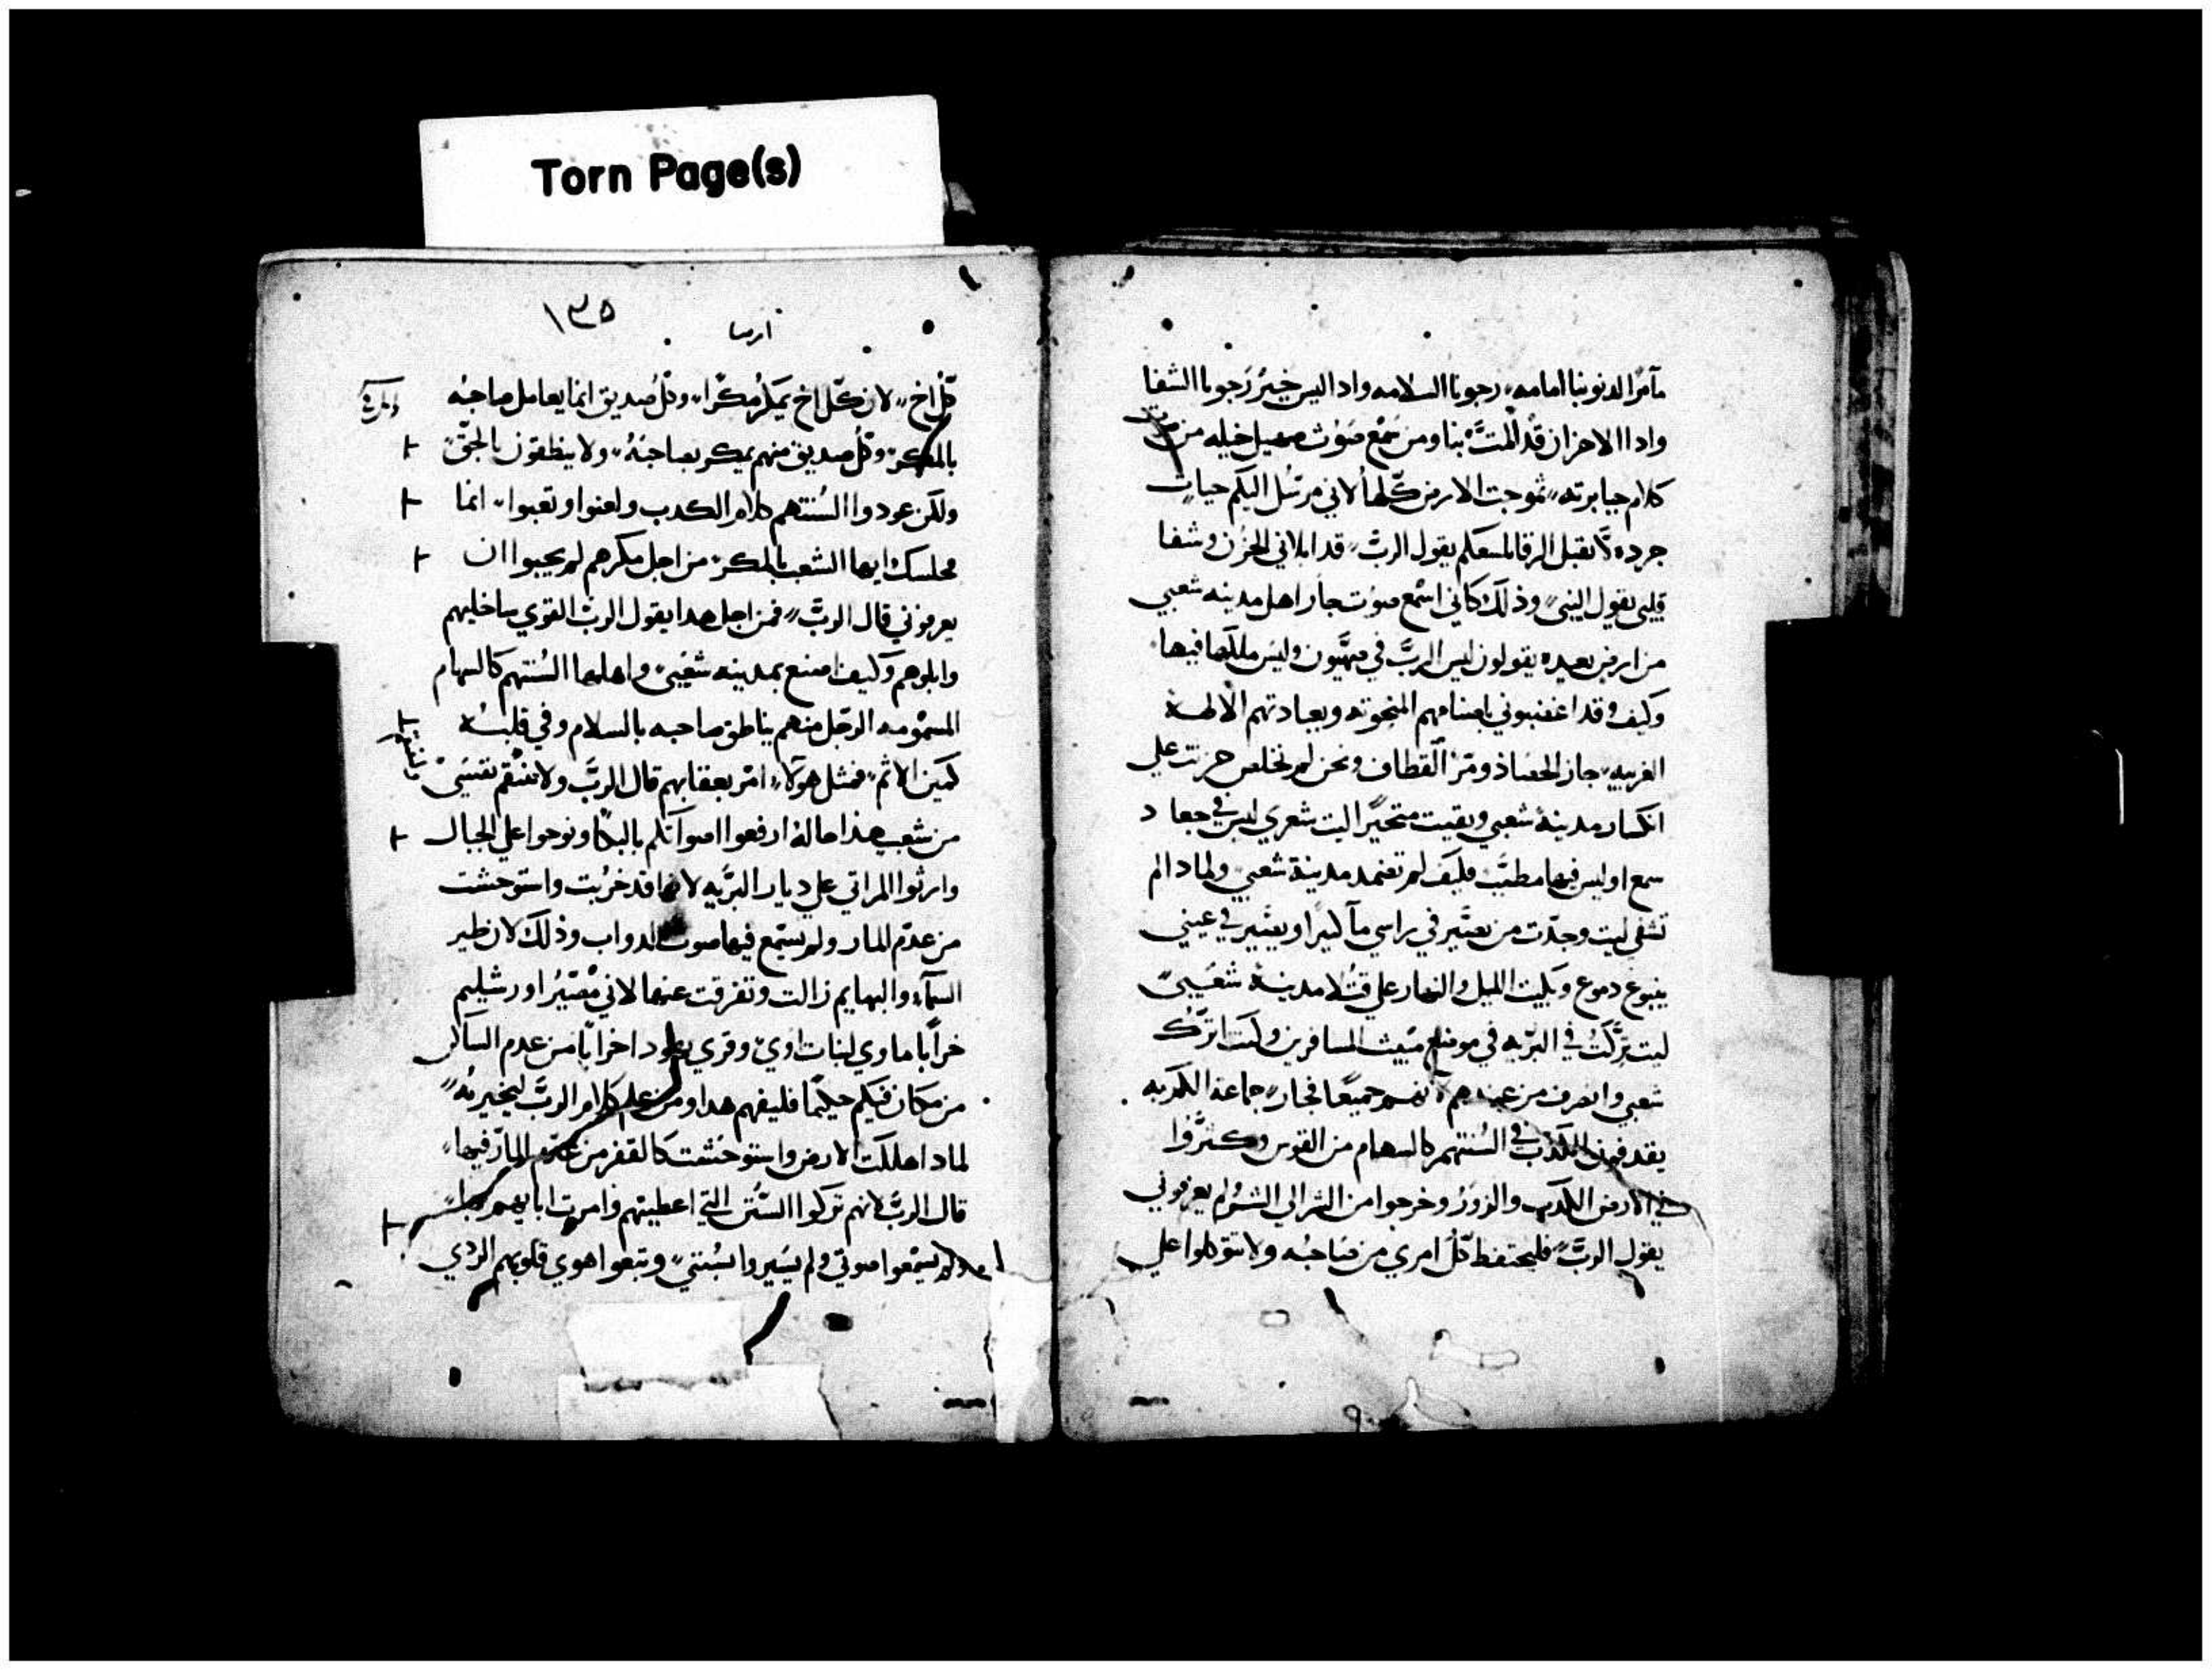 Torn Page(s)
مآمرّ الدنوبنا امامه رجونا السلامه واد اليس خيرٌ رجونا الشفا
واد الاحزان قد المتّ بنا ومن سمع صوت صهيل خيله من
كلام جبابرته تموجت الارض كلها لاني مرسل اليكم حيات
جرده لا تقبل الرقا لتسعكم يقول الربّ قد ابلاني الحزن وشفا
قلبي يقول النبي وذلك كاني اسمع صوت جار اهل مدينه شعبي
من ارض بعيده يقولون ليس الربّ في صهيون وليس ملكها فيها
وكيف وقد اغضبوني باصنامهم المنحوته وبعبادتهم الالهه
الغريبه جاز الحصاد ومرّ القطاف ونحن لم نخلص حزنت علي
انكسار مدينة شعبي وبقيت متحيرًا ليت شعري ليس في جعاد
سمع اوليس فيها مطبّب فكيف لم تضمد مدينة شعبي ولماد الم
تشفى ليت وجدت من يصيّر في راسي مآ كثيرا ويصيّر في عيني
ينبوع دموع وبكيت الليل والنهار علي قتلا مدينة شعبي
ليت تركت في البرّيه في موضع مبيت المسافرين وكنت اترك
شعبي وانصرف من عندهم جميعًا فجار جماعة الكدبه
يقدفون الكدب في السنتهم كالسهام من القوس وكثروا
في الارض الكدب والزور وخرجوا من الشر الي الشر ولم يعرفوني
يقول الربّ فليحتفظ كلّ امري من صاحبه ولا تتوكلوا علي
١٣٥
ارميا
كل اخ لان كلّ اخ يمكر مكرًا وكل صديق انما يعامل صاحبه
بالمكر وكل صديق منهم يمكر بصاحبه ولا ينطقون بالحقّ
ولكن عودوا السنتهم كلام الكدب ولعنوا وتعبوا انما
مجلسك ايها الشعب بالمكر من اجل مكرهم لم يحبوا ان
يعرفوني قال الربّ فمن اجل هدا يقول الربّ القوي ساخليهم
وابلوهم وكيف اصنع بمدينه شعبي واهلها السنتهم كالسهام
المسمومه الرجل منهم يناطق صاحبه بالسلام وفي قلبه
كمين الاثم فمثل هولاء امر بعقابهم قال الربّ ولا تنتقم نفسي
من شعب هدا حاله ارفعوا اصواتكم بالبكا ونوحوا علي الجبال
وارثوا المراتي علي ديار البرّيه لانها قد خربت واستوحشت
من عدم المار ولم يستمع فيها صوت الدواب وذلك لان طير
السمآء والبهايم زالت وتفرقت عنها لاني مصيّر اورشليم
خرابًا ماوي لبنات اوي وقري يهودا خرابًا من عدم الساكن
من كان فيكم حكيمًا فليفهم هدا ومن علم كلام الربّ ليخبر به
لماد اهلكت الارض واستوحشت كالقفر من عدم المارّ فيها
قال الربّ لانهم تركوا السنن التي اعطيتهم وامرت ابايهم
ولم يسمعوا صوتي ولم يسيروا بسنتي وتبعوا هوي قلوبهم الردي